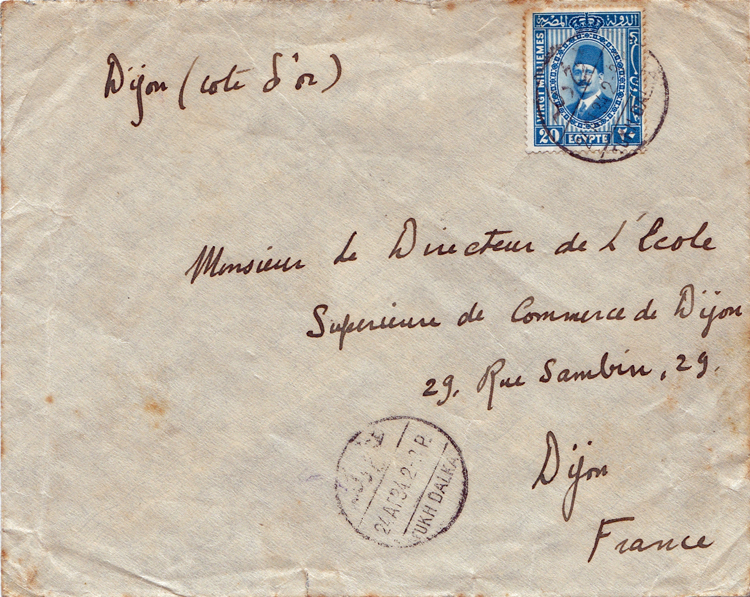 Dijon (cote d'or)
الدولة المصرية
VINGT MILLIEMES
20 EGYPTE ٢٠
Monsieur Le Directeur de L'Ecole
Superieure de Commerce de Dijon
29, Rue Sambin, 29.
Dijon
France
TUKH DALKA